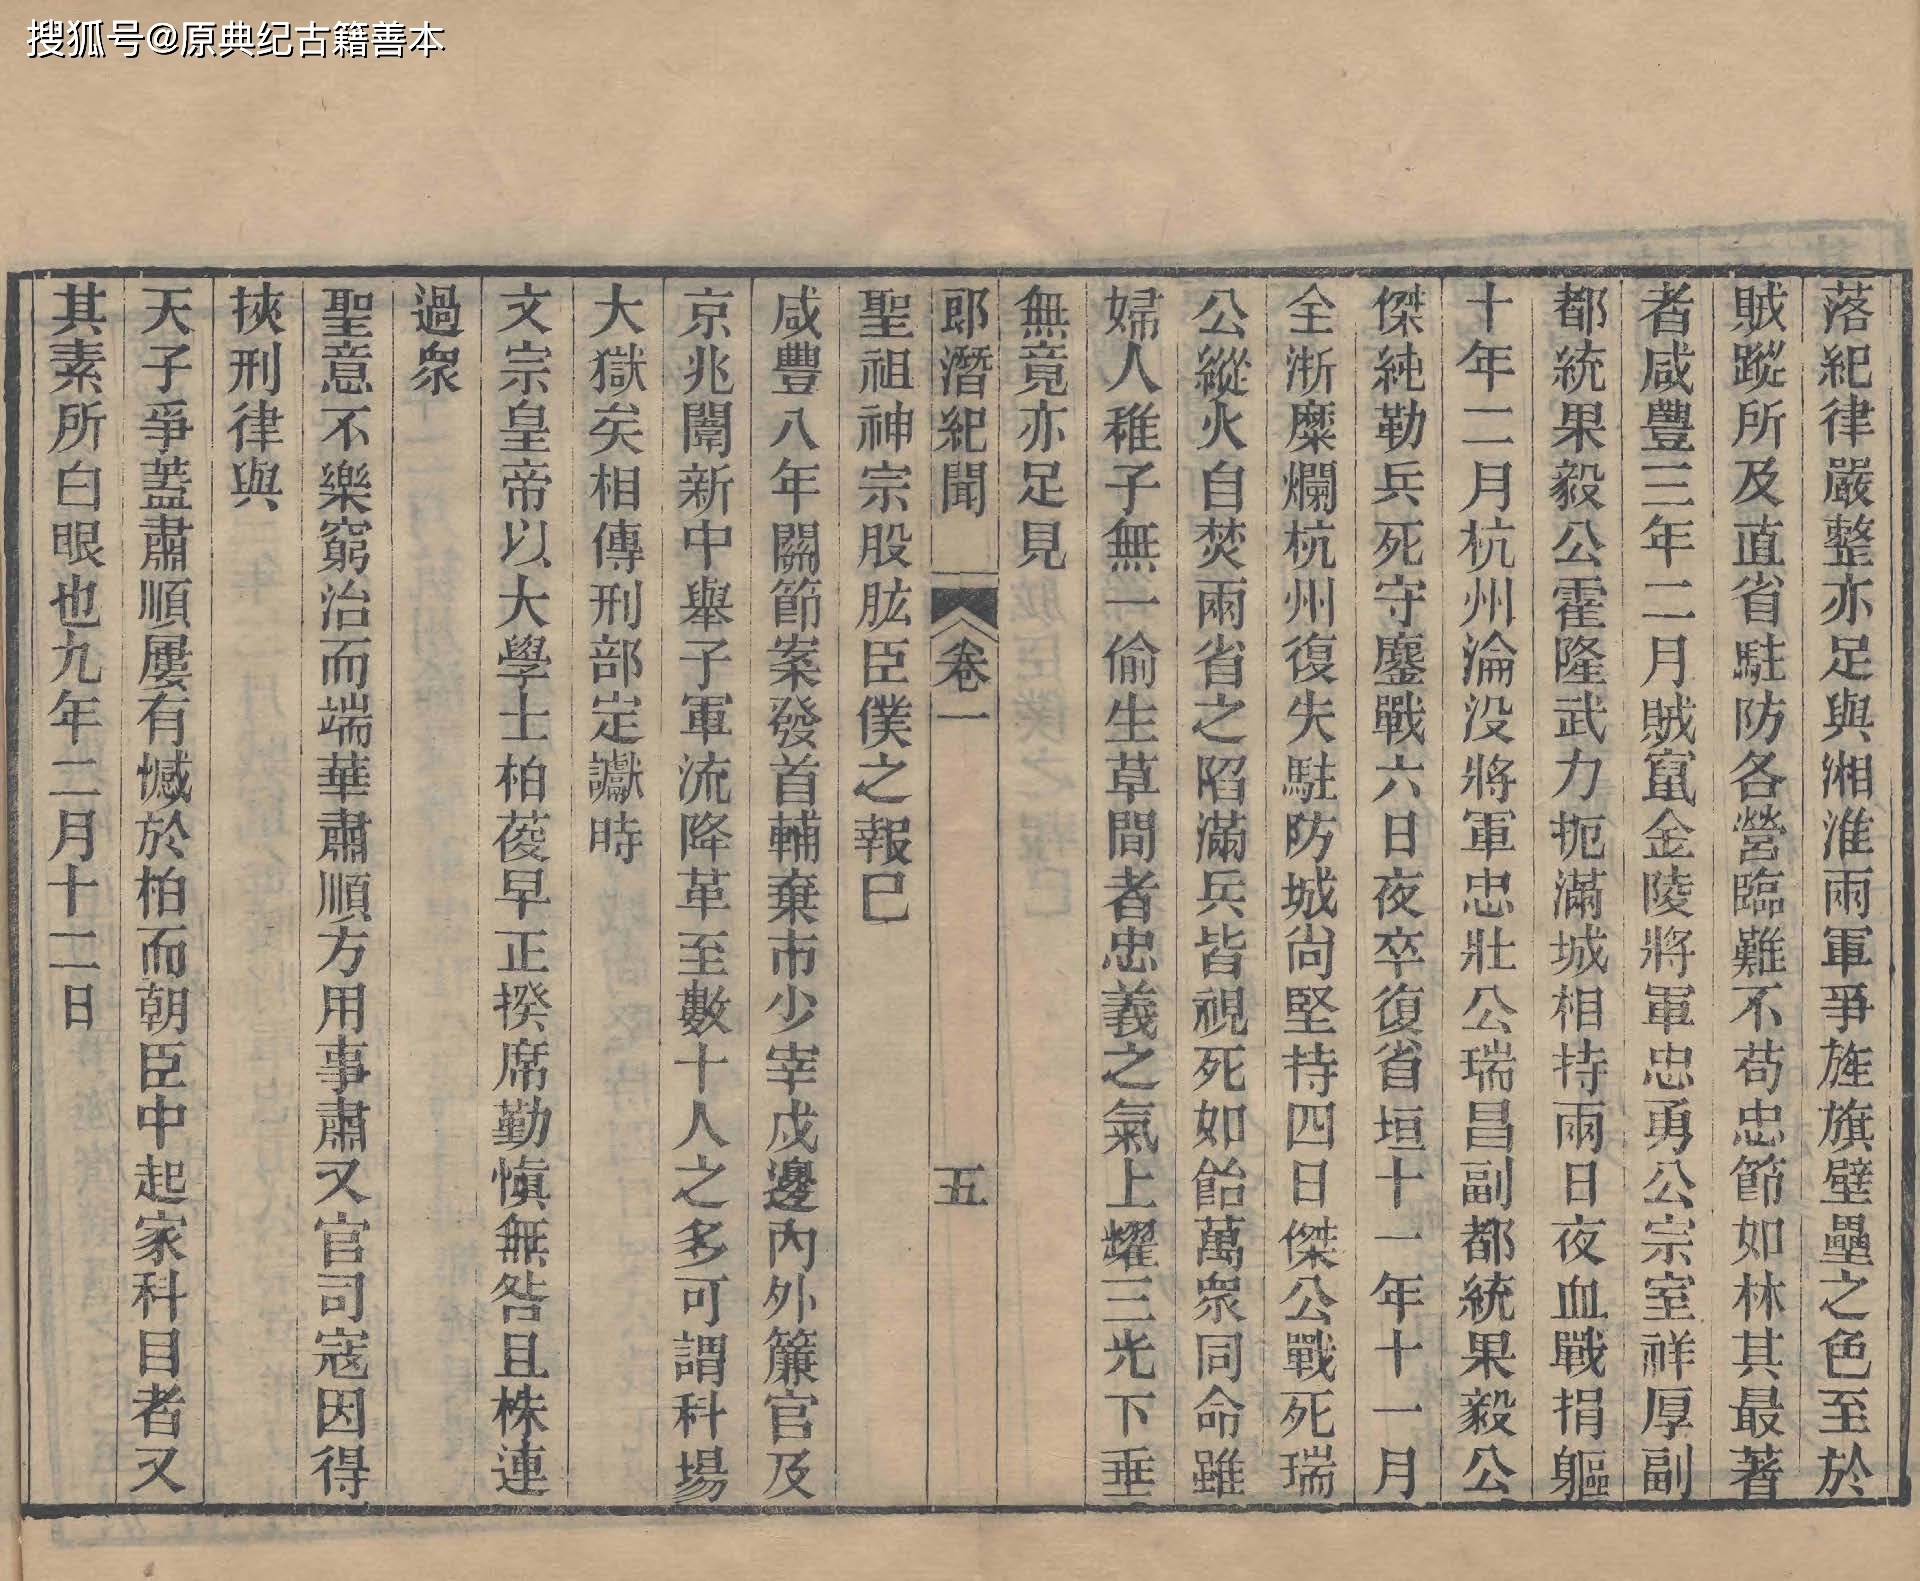 搜狐号@原典纪古籍善本
落紀律嚴整亦足與湘淮兩軍爭旌旗壁壘之色至於
賊蹤所及直省駐防各營臨難不苟忠節如林其最著
者咸豐三年二月賊竄金陵將軍忠勇公宗室祥厚副
都統果毅公霍隆武力扼滿城相持兩日夜血戰捐軀
十年二月杭州淪没將軍忠壯公瑞昌副都統果毅公
傑純勒兵死守鏖戰六日夜卒復省垣十一年十一月
全淅糜爛杭州復失駐防城尙堅持四日傑公戰死瑞
公縱火自焚兩省之陷滿兵皆視死如飴萬衆同命雖
婦人稚子無一偷生草間者忠義之氣上燿三光下垂
無竟亦足見
郎潛紀聞 卷一 五
聖祖神宗股肱臣僕之報巳
咸豐八年關節案發首輔棄市少宰戍邊內外簾官及
京兆闈新中舉子軍流降革至數十人之多可謂科場
大獄矣相傳刑部定讞時
文宗皇帝以大學士柏葰早正揆席勤愼無咎且株連
過衆
聖意不樂窮治而端華肅順方用事肅又官司寇因得
挾刑律與
天子爭蓋肅順屢有憾於柏而朝臣中起家科目者又
其素所白眼也九年二月十二日